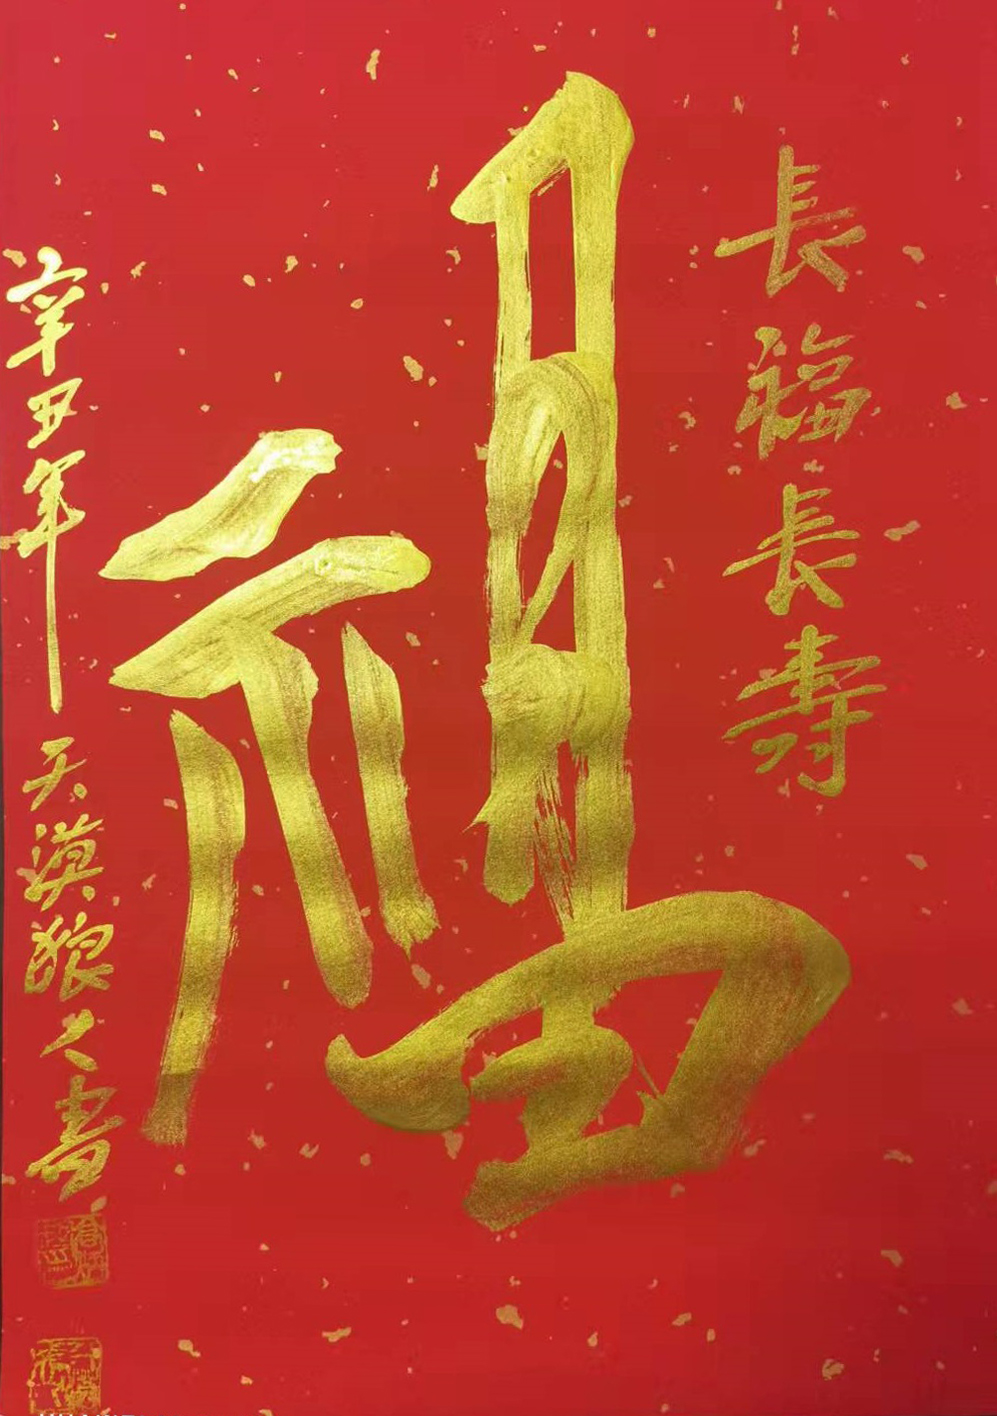 長福長寿
福
辛丑年 天漠狼人書